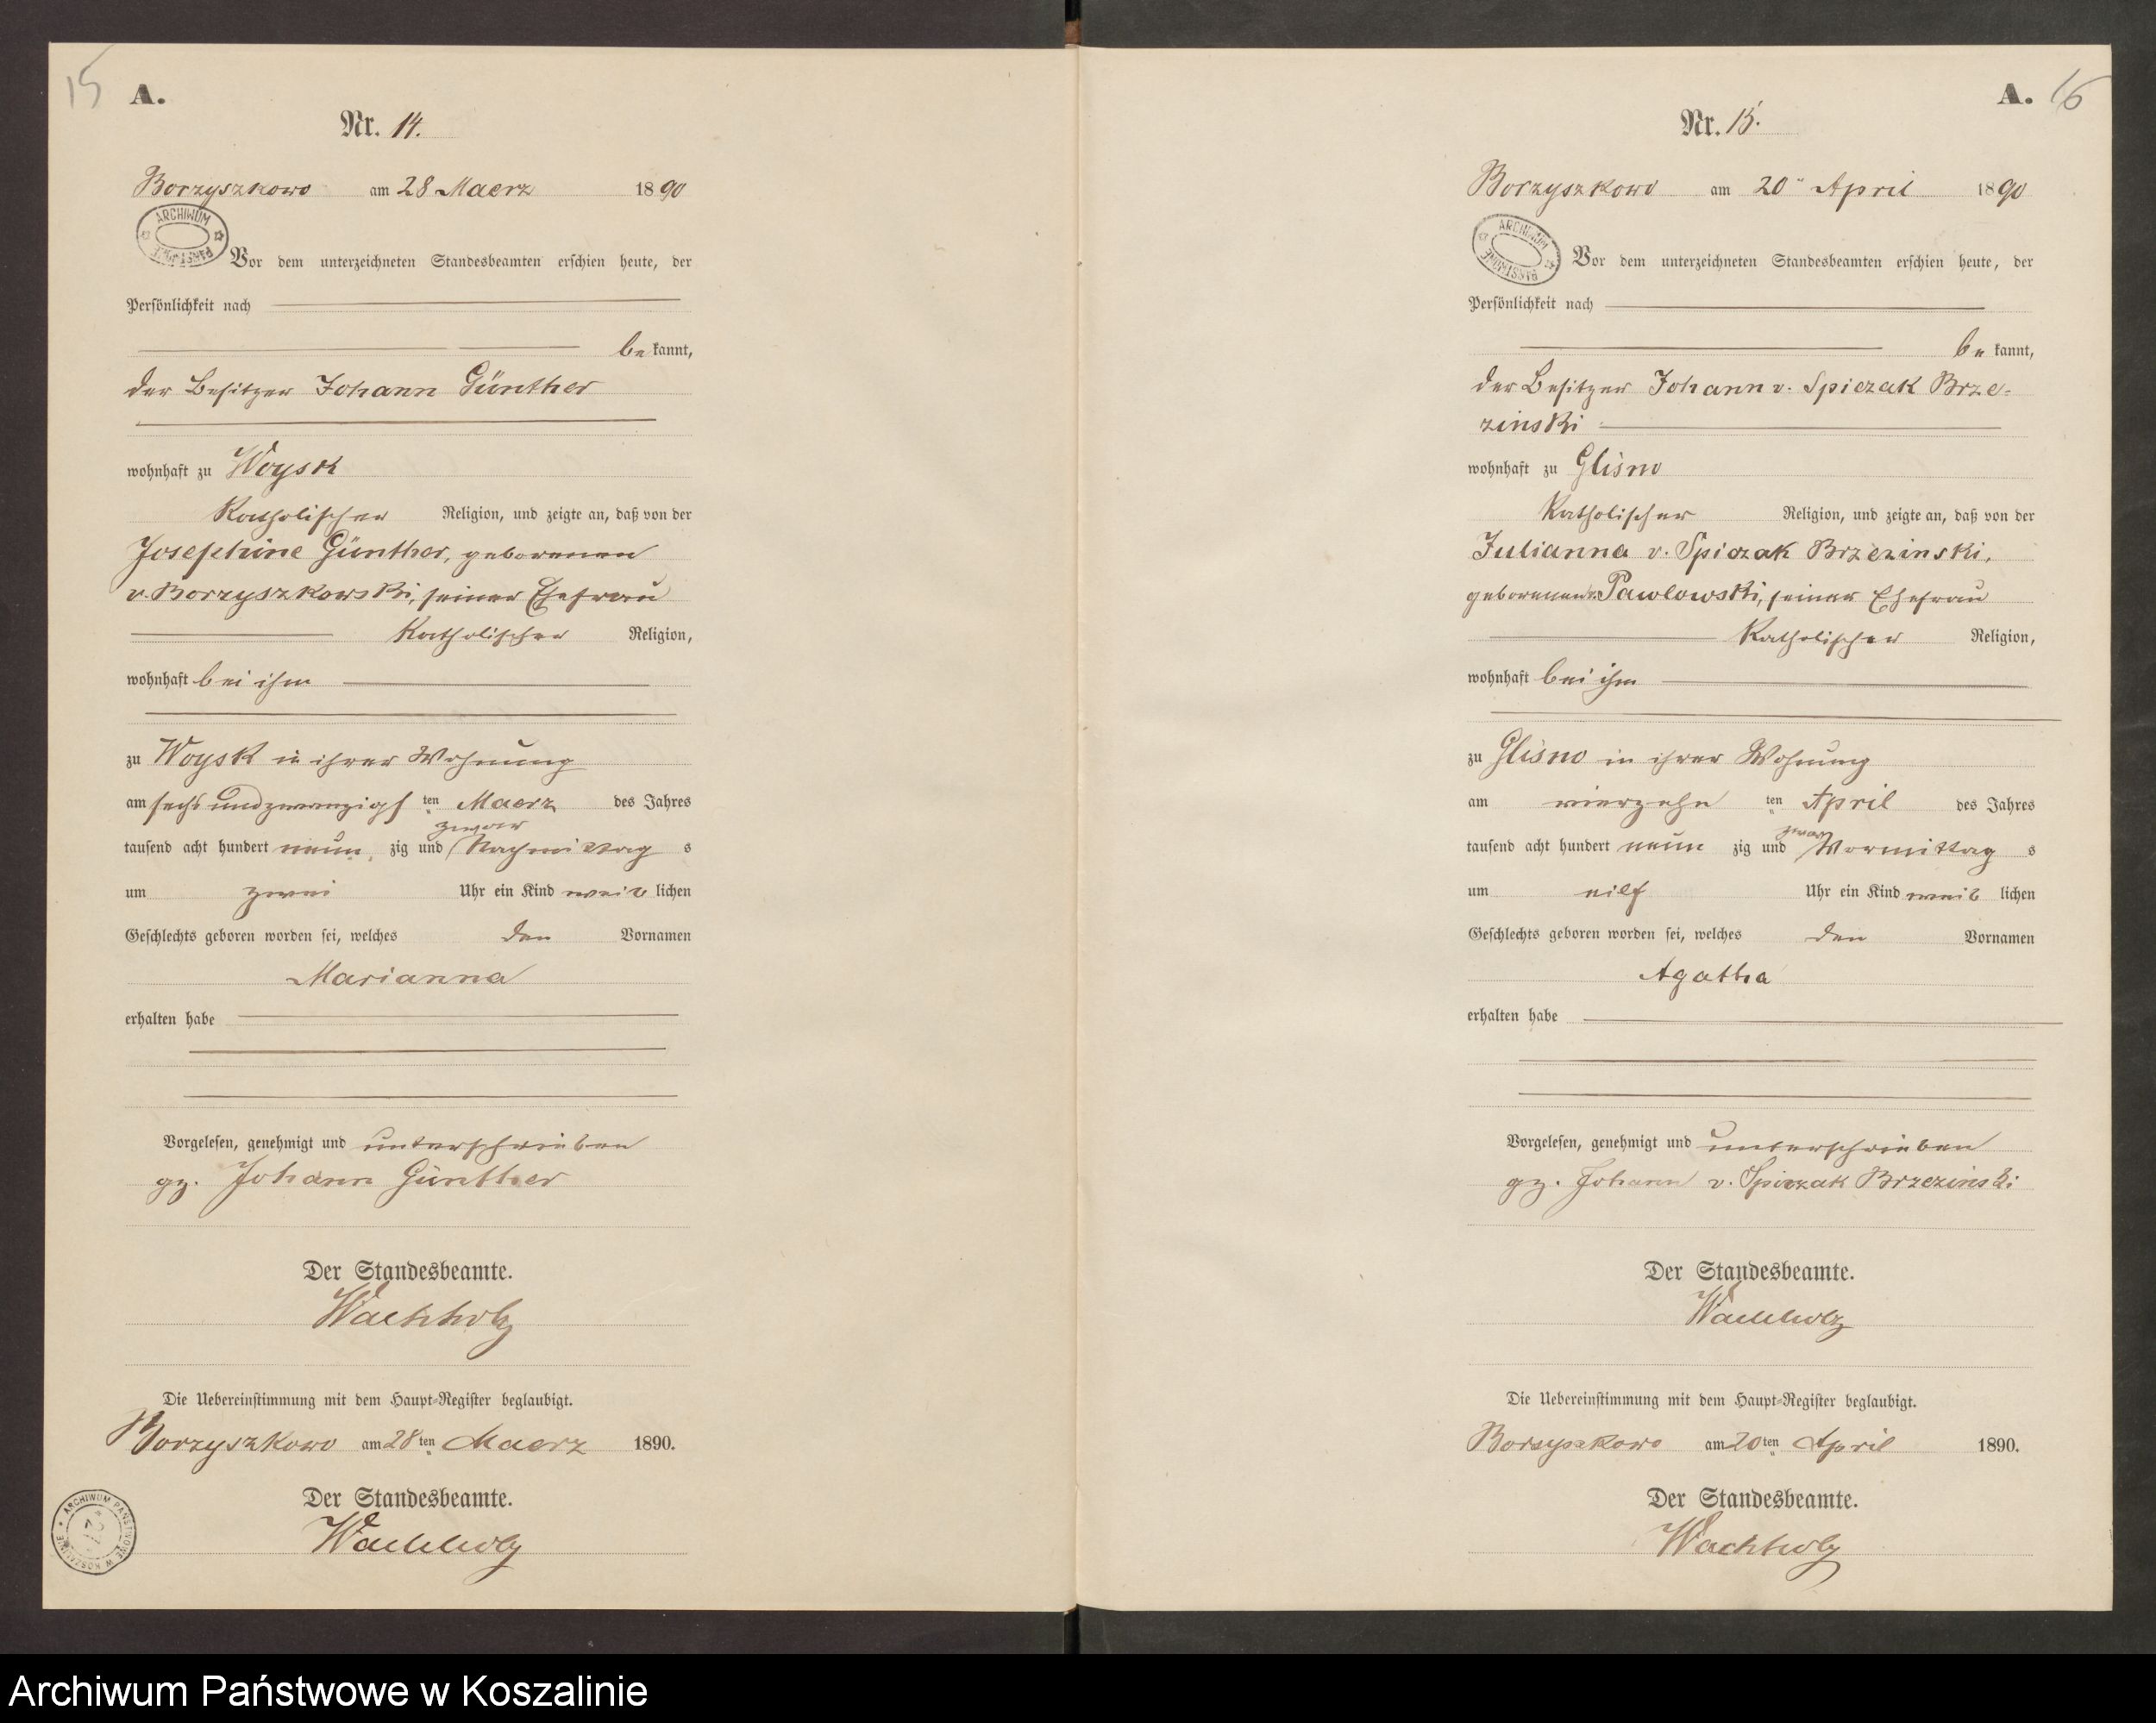 15
A.
Nr. 14.
Borzyszkowo am 28 Maerz 1890
ARCHIWUM PAŃSTWOWE
Vor dem unterzeichneten Standesbeamten erschien heute, der
Persönlichkeit nach
bekannt,
der Besitzer Johann Günther
wohnhaft zu Woysk
Katholischer Religion, und zeigte an, daß von der
Josephine Günther, geborenen
v. Borzyszkowski, seiner Ehefrau
Katholischer Religion,
wohnhaft bei ihm
zu Woysk in ihrer Wohnung
am sechs und zwanzigs ten Maerz des Jahres
zwar
tausend acht hundert neun zig und Nachmittag s
um zwei Uhr ein Kind weib lichen
Geschlechts geboren worden sei, welches den Vornamen
Marianna
erhalten habe
Vorgelesen, genehmigt und unterschrieben
gz. Johann Günther
Der Standesbeamte.
Wachholz
Die Uebereinstimmung mit dem Haupt-Register beglaubigt.
Borzyszkowo am 28ten Maerz 1890.
Der Standesbeamte.
Wachholz
ARCHIWUM PAŃSTWOWE W KOSZALINIE
27
A. 16
Nr. 15.
Borzyszkowo am 20" April 1890
ARCHIWUM PAŃSTWOWE
Vor dem unterzeichneten Standesbeamten erschien heute, der
Persönlichkeit nach
bekannt,
der Besitzer Johann v. Spiczak Brze-
zinski
wohnhaft zu Glisno
Katholischer Religion, und zeigte an, daß von der
Julianna v. Spiczak Brzezinski,
geborenen Pawlowski, seiner Ehefrau
Katholischer Religion,
wohnhaft bei ihm
zu Glisno in ihrer Wohnung
am vierzehn ten April des Jahres
zwar
tausend acht hundert neun zig und Vormittag s
um eilf Uhr ein Kind weib lichen
Geschlechts geboren worden sei, welches den Vornamen
Agatha
erhalten habe
Vorgelesen, genehmigt und unterschrieben
gz. Johann v. Spiczak Brzezinski
Der Standesbeamte.
Wachholz
Die Uebereinstimmung mit dem Haupt-Register beglaubigt.
Borzyszkowo am 20ten April 1890.
Der Standesbeamte.
Wachholz
Archiwum Państwowe w Koszalinie